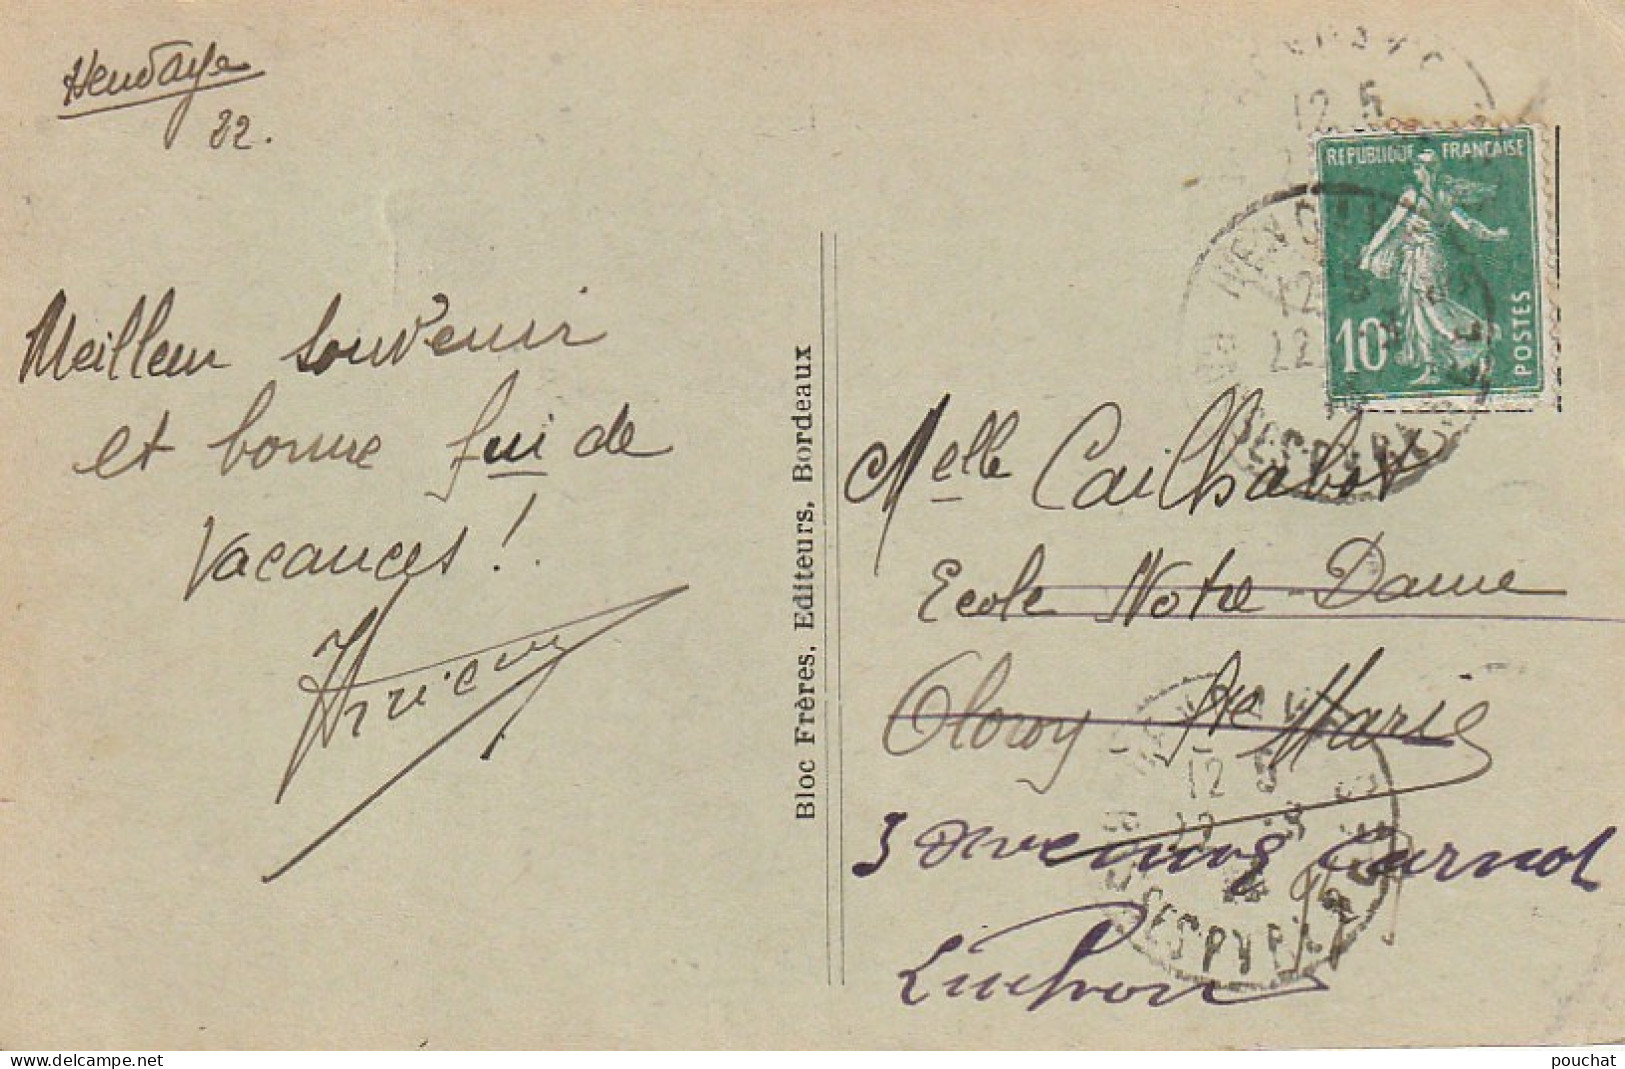 Hendaye
22.
Meilleur souvenir
et bonne fin de
vacances !
Bloc Frères, Editeurs, Bordeaux
REPUBLIQUE FRANCAISE
10
POSTES
HENDAYE
12 5
22
BSES PYRÉNÉES
Melle Cailhabot
Ecole Notre-Dame
Oloron Ste Marie
3 avenue Carnot
Luchon
12 5
22
BSES PYRÉNÉES
www.delcampe.net
pouchat